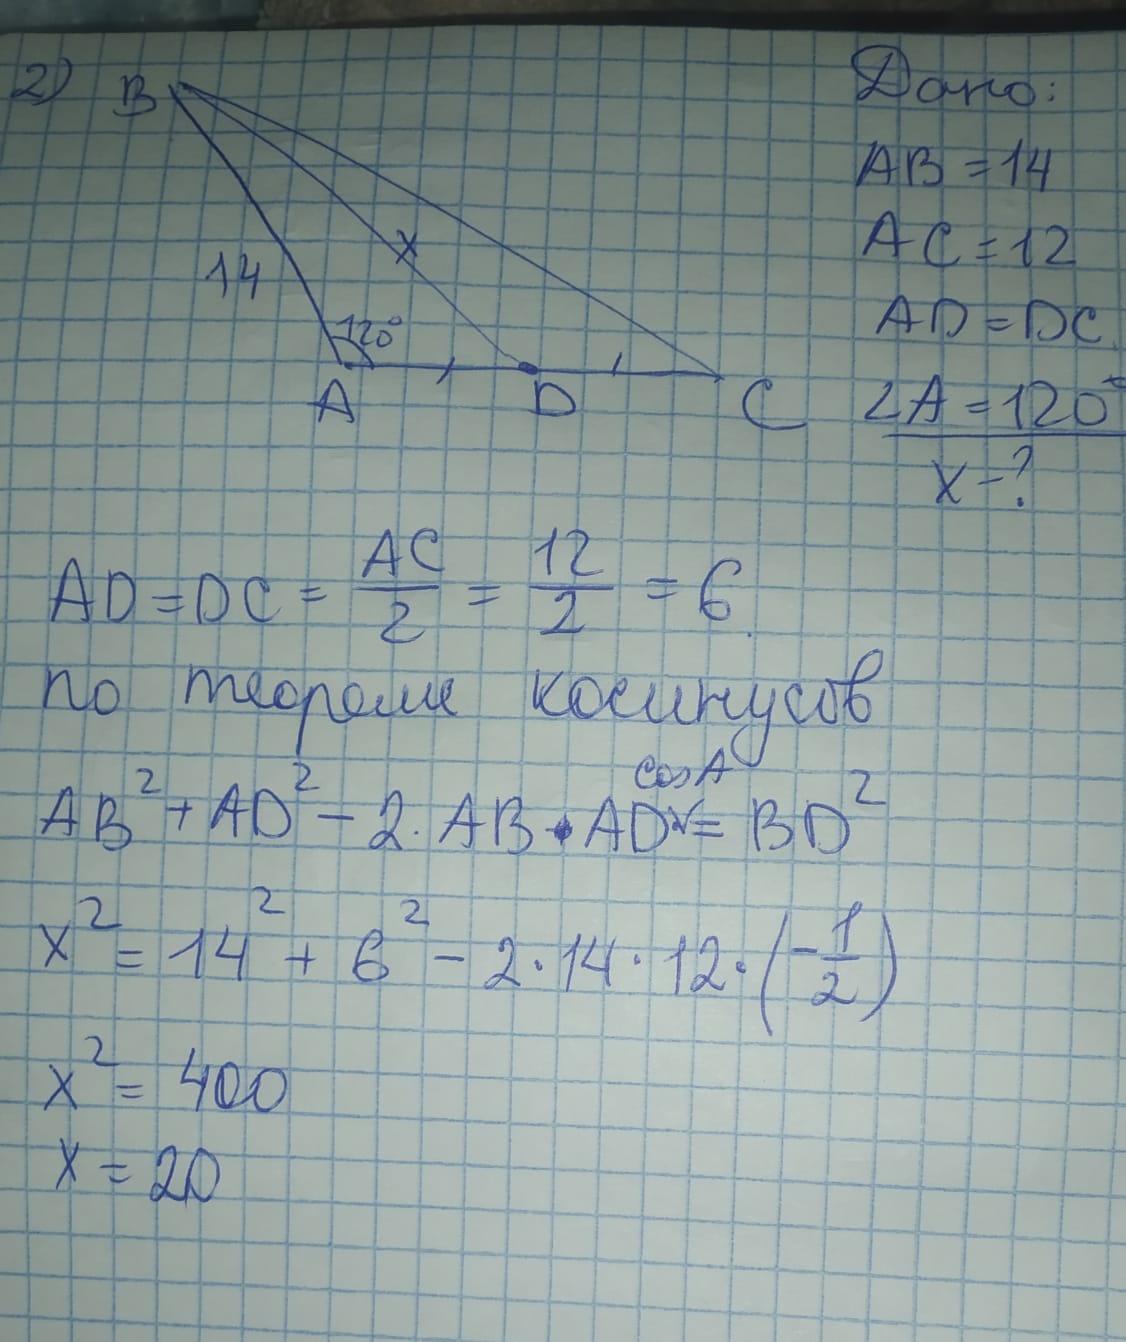 2)
B
14
x
120°
A
D
C
Дано:
AB = 14
AC = 12
AD = DC
∠A = 120°
x - ?
AD = DC = AC/2 = 12/2 = 6
по теореме косинусов
AB² + AD² - 2 · AB · AD cos A = BD²
x² = 14² + 6² - 2 · 14 · 12 · (-1/2)
x² = 400
x = 20